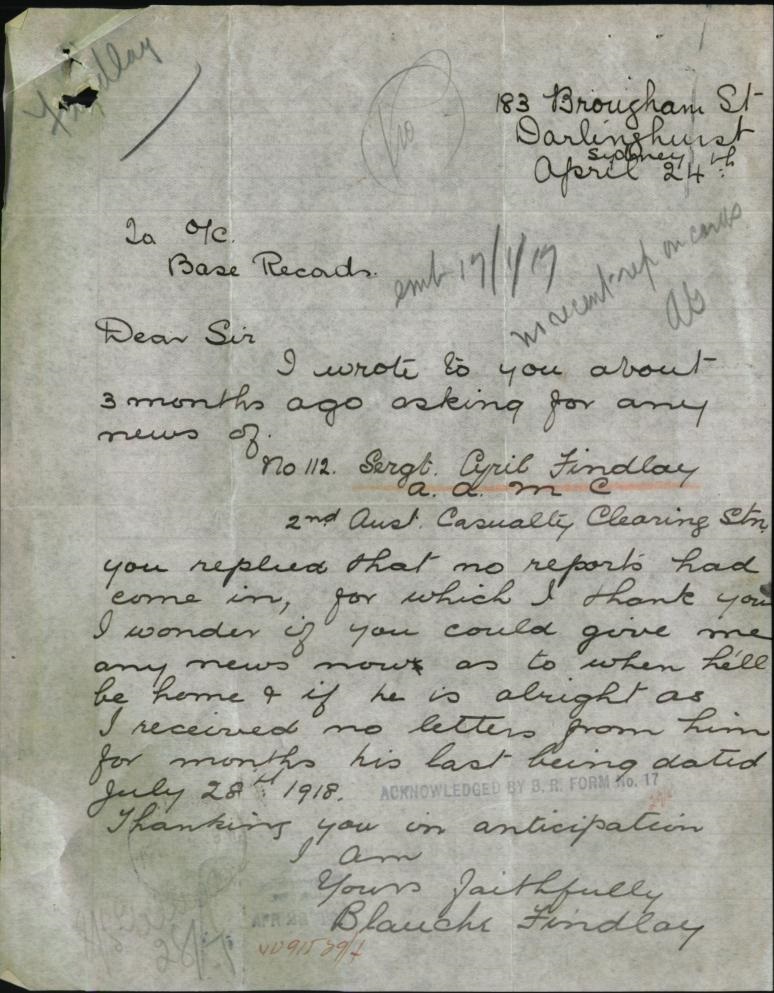 Findlay
183 Brougham St
Darlinghurst
Sydney
April 24th
To O/C.
Base Records.
emb 17/1/17
no recent rep on cards
Dear Sir
I wrote to you about
3 months ago asking for any
news of.
No 112. Sergt. Cyril Findlay
A. A. M C
2nd Aust. Casualty Clearing Stn.
you replied that no reports had
come in, for which I thank you
I wonder if you could give me
any news now as to when he'll
be home & if he is alright as
I received no letters from him
for months his last being dated
July 28th 1918.
ACKNOWLEDGED BY B. R. FORM No. 17
Thanking you in anticipation
I Am
Yours Faithfully
Blanche Findlay